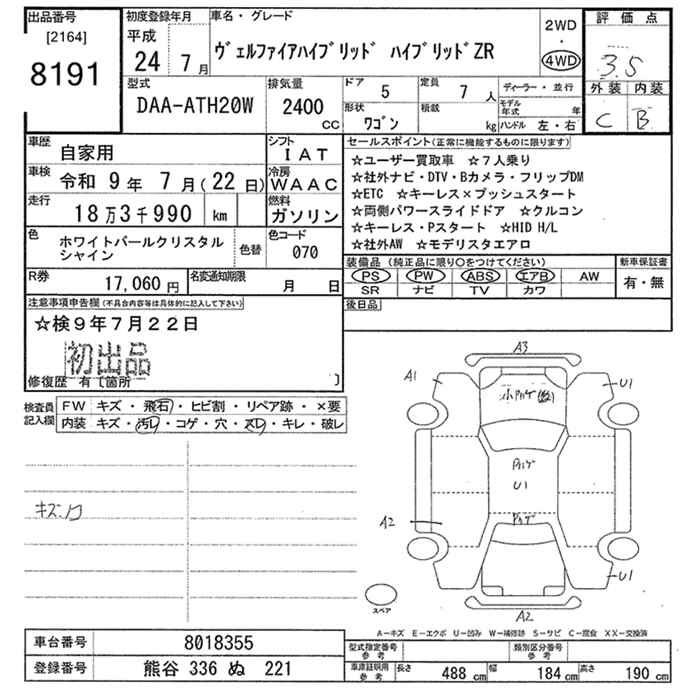 出品番号
[2164]
8191
初度登録年月
平成
24 7月
車名・グレード
ヴェルファイアハイブリッド ハイブリッドZR
2WD
・
4WD
評価点
3.5
外装 内装
C B
型式
DAA-ATH20W
排気量
2400
CC
ドア 5
形状 ワゴン
定員 7人
積載 kg
ディーラー・並行
モデル年式 年
ハンドル 左・右
車歴
自家用
シフト
IAT
車検
令和 9年 7月(22日)
冷房
WAAC
走行
18万3千990 km
燃料
ガソリン
色
ホワイトパールクリスタル
シャイン
色替
色コード
070
R券
17,060円
名変通知期限
月 日
セールスポイント(正常に機能するものに限ります)
☆ユーザー買取車 ☆7人乗り
☆社外ナビ・DTV・Bカメラ・フリップDM
☆ETC ☆キーレス×プッシュスタート
☆両側パワースライドドア ☆クルコン
☆キーレス・Pスタート ☆HID H/L
☆社外AW ☆モデリスタエアロ
装備品(純正品に限り〇をつけてください)
PS PW ABS エアB AW
SR ナビ TV カワ
新車保証書
有・無
後日品
注意事項申告欄(不具合内容等は具体的に記入して下さい)
☆検9年7月22日
初出品
修復歴 有〔箇所 〕
検査員
記入欄
FW キズ・飛石・ヒビ割・リペア跡・×要
内装 キズ・汚レ・コゲ・穴・スレ・キレ・破レ
キズ.凹
A3
A1
U1
U1
A2
U1
A2
スペア
A−キズ E−エクボ U−凹み W−補修跡 S−サビ C−腐食 XX−交換済
車台番号
8018355
登録番号
熊谷 336 ぬ 221
型式指定番号
参考
類別区分番号
参考
車庫証明用
参考
長さ 488 cm
幅 184 cm
高さ 190 cm